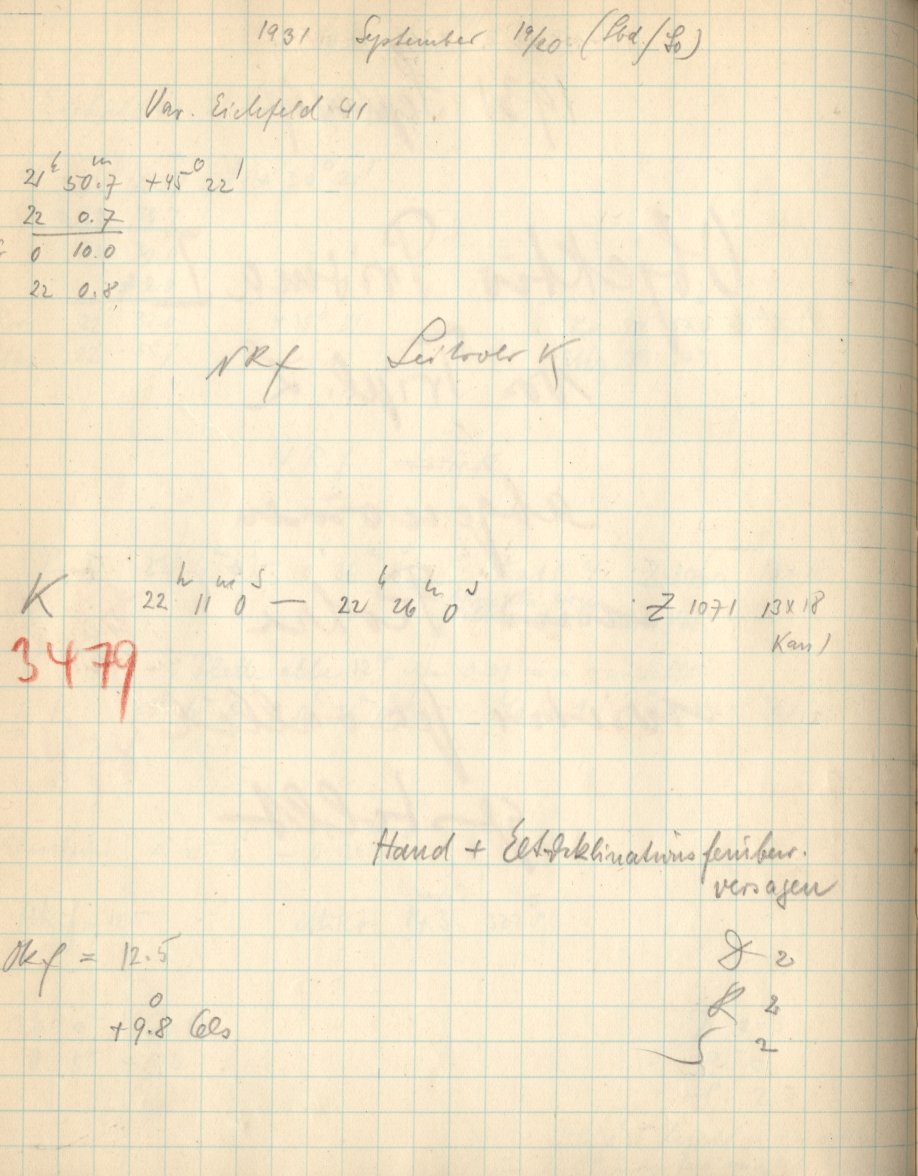 1931 September 19/20 (Sbd./So)
Var. Eichfeld 41
21ʰ 50.7ᵐ +45° 22'
22 0.7
0 10.0
22 0.8
NRf Leitrohr K
K 22ʰ 11ᵐ 0ˢ — 22ʰ 26ᵐ 0ˢ Z 1071 13x18
3479
Hand + Elt. deklinations
versagen
Okf = 12.5
+9.8° Cels
2
R 2
S 2